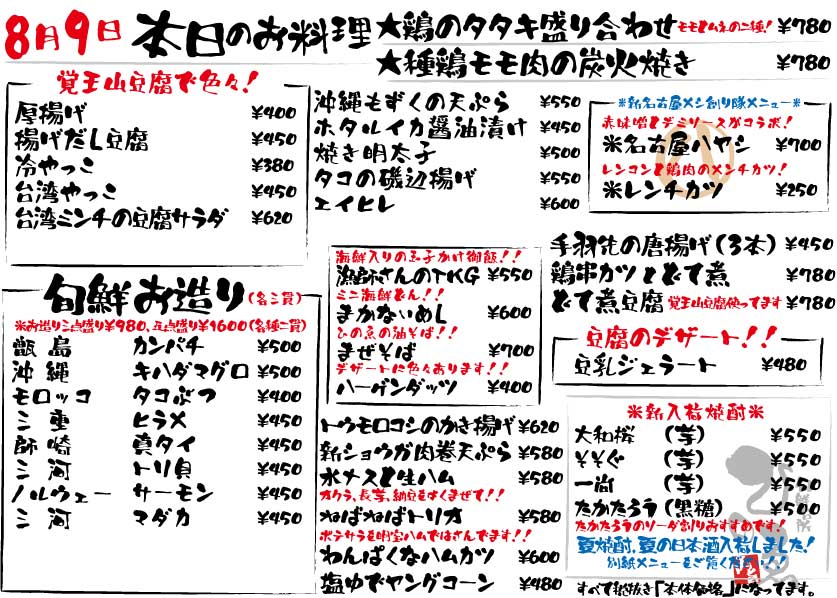 8月9日 本日のお料理
★鶏のタタキ盛り合わせ モモとムネの二種! ¥780
★種鶏モモ肉の炭火焼き ¥780
覚王山豆腐で色々!
厚揚げ ¥400
揚げだし豆腐 ¥450
冷やっこ ¥380
台湾やっこ ¥450
台湾ミンチの豆腐サラダ ¥620
沖縄もずくの天ぷら ¥550
ホタルイカ醤油漬け ¥450
焼き明太子 ¥500
タコの磯辺揚げ ¥550
エイヒレ ¥600
※新名古屋メシ創り隊メニュー※
赤味噌とデミソースがコラボ!
※名古屋ハヤシ ¥700
レンコンと鶏肉のメンチカツ!
※レンチカツ ¥250
旬鮮お造り(各三貫)
※お造り三点盛り¥980、五点盛り¥1600(各種二貫)
甑島 カンパチ ¥500
沖縄 キハダマグロ ¥500
モロッコ タコぶつ ¥400
三重 ヒラメ ¥450
師崎 真タイ ¥450
三河 トリ貝 ¥450
ノルウェー サーモン ¥450
三河 マダカ ¥450
海鮮入りの玉子かけ御飯!!
漁師さんのTKG ¥550
ミニ海鮮どん!!
まかないめし ¥600
ひの魚の油そば!!
まぜそば ¥700
デザートに色々あります!!
ハーゲンダッツ ¥400
手羽先の唐揚げ(3本) ¥450
鶏串カツとどて煮 ¥780
どて煮豆腐 覚王山豆腐使ってます ¥780
豆腐のデザート!!
豆乳ジェラート ¥480
トウモロコシのかき揚げ ¥620
新ショウガ肉巻天ぷら ¥580
水ナスと生ハム ¥580
オクラ、長芋、納豆をよくまぜて!!
ねばねばトリオ ¥580
ポテサラを明宝ハムではさんでます!
わんぱくなハムカツ ¥600
塩ゆでヤングコーン ¥480
※新入荷焼酎※
大和桜 (芋) ¥550
そそぐ (芋) ¥550
一尚 (芋) ¥550
たかたろう (黒糖) ¥500
たかたろうのソーダ割りおすすめです!
夏焼酎、夏の日本酒入荷しました!
別紙メニューをご覧ください!!
すべて税抜き「本体価格」になってます。